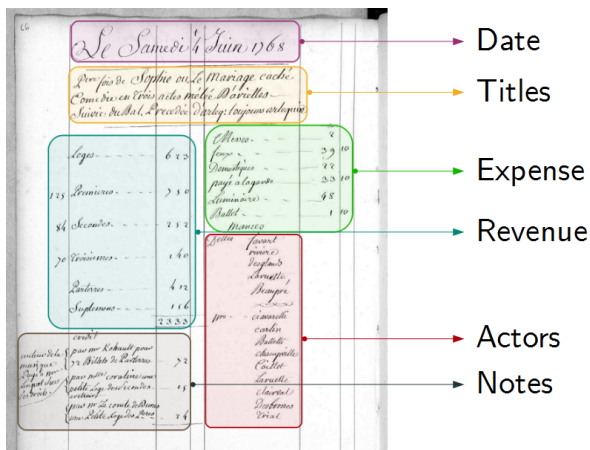 Le Samedi 4 Juin 1768
Date
Pre fois de Sophie ou Le Mariage caché
Comedie en trois actes mêlée D'ariettes
Suivie du Bal, Precedée d'arleq: toujours arlequin
Titles
Loges 623
125 Premieres 750
84 Secondes 252
70 Troisiemes 140
Parterres 412
Suplemens 156
2333
Messes 2
feux 39 10
Domestiques 22
payé à la garde 33 10
Luminaire 48
Ballet 1 10
Expense
Revenue
Delles favart
riviere
desglands
Laruette
Beaupré
Mrs ciavarelli
carlin
Balletti
champville
Caillot
Laruette
clairval
Desbrosses
trial
Actors
credit
auteur de la musique
par mr Kohault pour
72 Billets de Parterres 72
par mlle coraline une
petite Loge des secondes 15
par mr Le comte de
une Petite Loge des 24
Notes